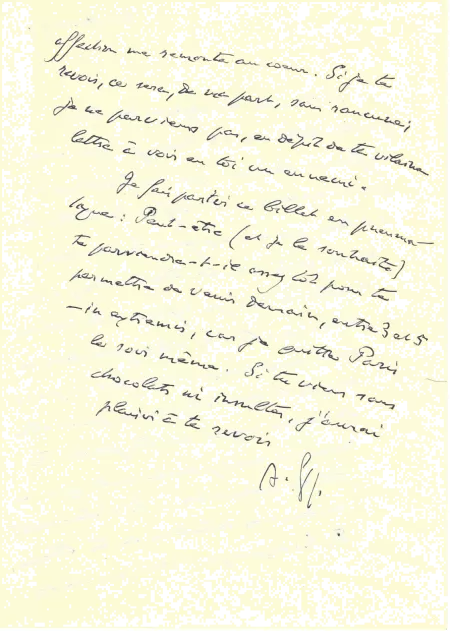 affection me remonte au coeur. Si je te
revois, ce sera, de ma part, sans rancune;
je ne parviens pas, en dépit de ta vilaine
lettre à voir en toi un ennemi.
Je fais partir ce billet en pneuma-
tique : Peut-être (et je le souhaite)
te parviendra-t-il assez tôt pour te
permettre de venir demain, entre 3 et 5
– in extremis, car je quitte Paris
le soir même. Si tu viens sans
chocolats ni insultes, j'aurai
plaisir à te revoir
A. G.